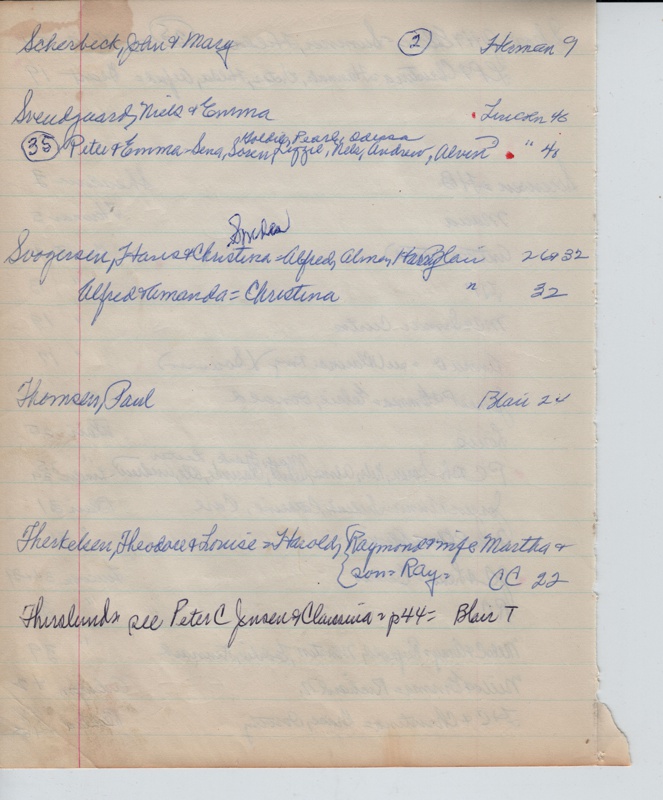 Scherbeck, John & Mary (2) Herman 9
Svendgaard, Niels & Emma Lincoln 46
Goldie, Pearl, Odessa
(35) Peter & Emma = Sena, Soren, Lizzie, Nels, Andrew, Alvin " 46
Svogersen, Hans & Christina = Alfred, Alma, Harry Blair 26 & 32
Alfred & Amanda = Christina " 32
Thomsen, Paul Blair 24
Therkelsen, Theodore & Louise = Harold, { Raymond & wife Martha &
{ son = Ray = CC 22
see Peter C Jensen & = p44 = Blair T